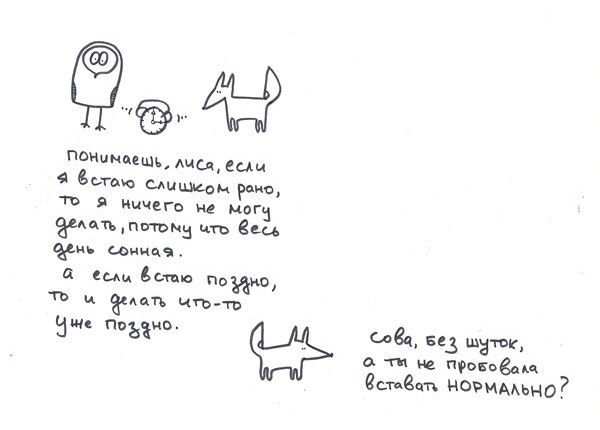 понимаешь, лиса, если
я встаю слишком рано,
то я ничего не могу
делать, потому что весь
день сонная.
а если встаю поздно,
то и делать что-то
уже поздно.
сова, без шуток,
а ты не пробовала
вставать НОРМАЛЬНО?